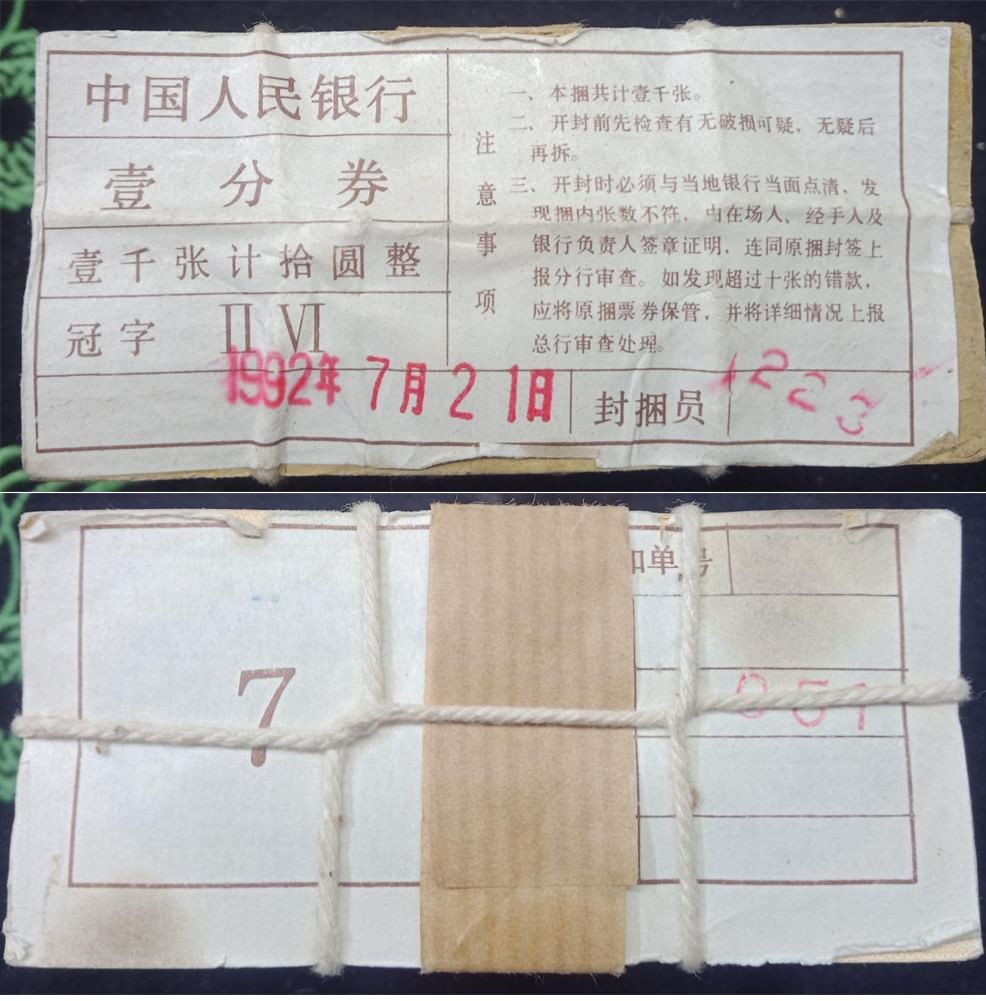 中国人民银行
壹分券
壹千张计拾圆整
冠字 II VI
1992年7月21日
注意事项
一、本捆共计壹千张。
二、开封前先检查有无破损可疑，无疑后
再拆。
三、开封时必须与当地银行当面点清，发
现捆内张数不符，由在场人、经手人及
银行负责人签章证明，连同原捆封签上
报分行审查。如发现超过十张的错款，
应将原捆票券保管，并将详细情况上报
总行审查处理。
封捆员
1223
7
单号
057